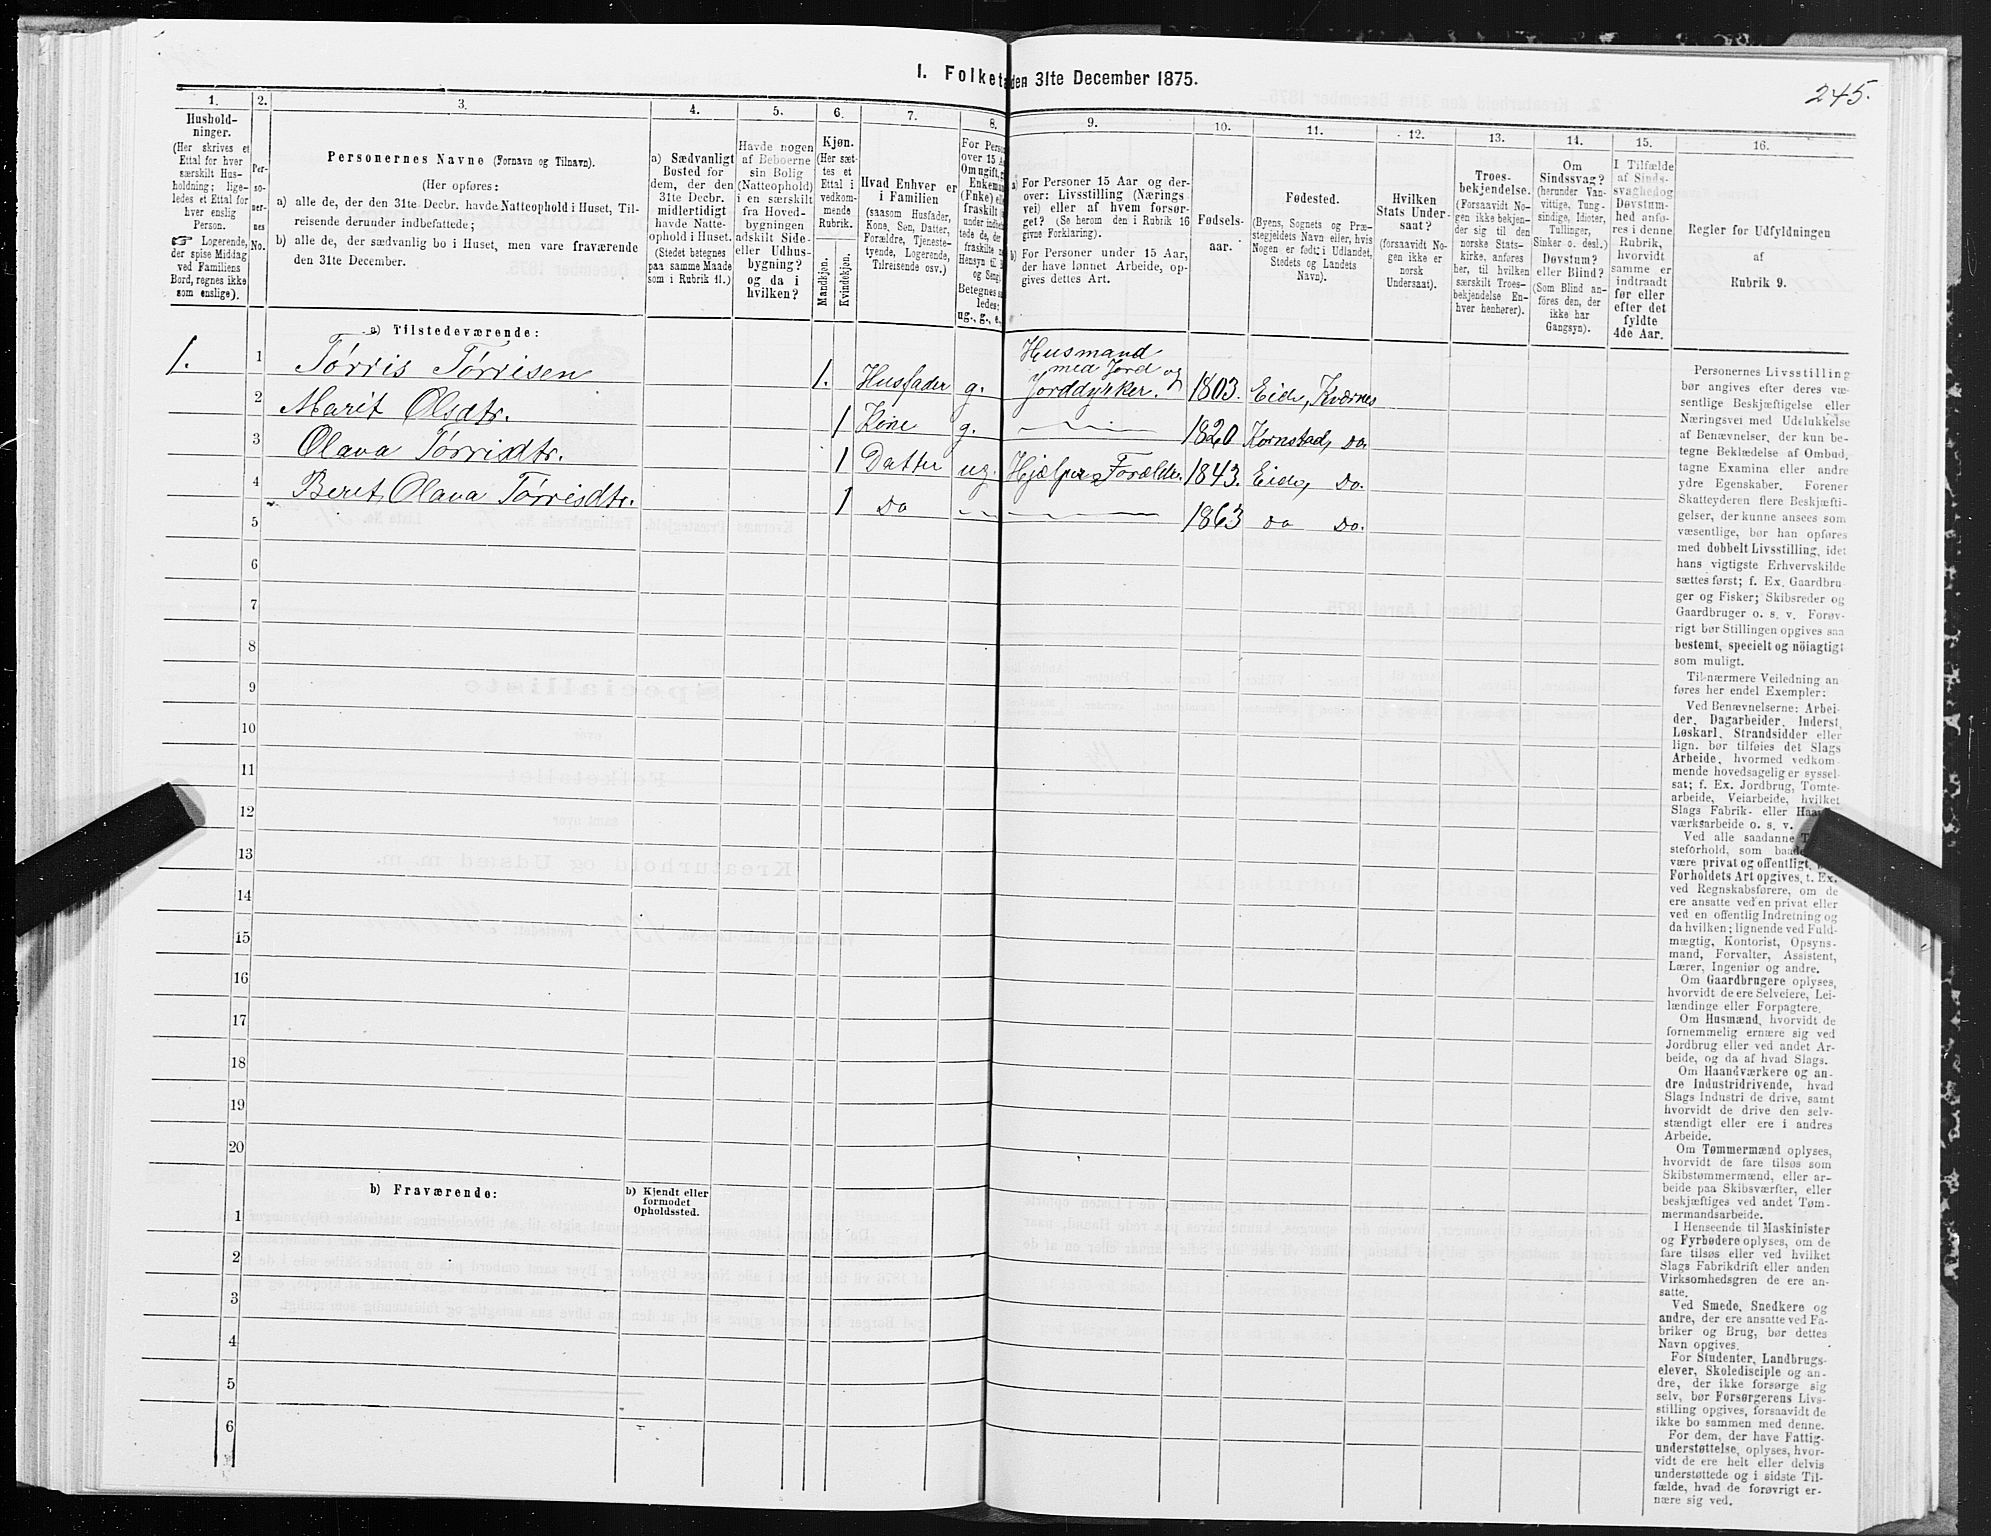 I. Folketæ den 31te December 1875.
245.
1. 2. 3. 4. 5. 6. 7. 8. 9. 10. 11. 12. 13. 14. 15. 16.
Hushold-
ninger.
(Her skrives et
Ettal for hver
særskilt Hus-
holdning; lige-
ledes et Ettal for
hver enslig
Person.
☞ Logerende,
der spise Middag
ved Familiens
Bord, regnes ikke
som enslige).
Per-
so-
ner-
nes
No.
Personernes Navne (Fornavn og Tilnavn).
(Her opføres:
a) alle de, der den 31te Decbr. havde Natteophold i Huset, Til-
reisende derunder indbefattede;
b) alle de, der sædvanlig bo i Huset, men vare fraværende
den 31te December.
a) Sædvanligt
Bosted for
dem, der den
31te Decbr.
midlertidigt
havde Natte-
ophold i Huset.
(Stedet betegnes
paa samme Maade
som i Rubrik 11.)
Havde nogen
af Beboerne
sin Bolig
(Natteophold)
i en særskilt
fra Hoved-
bygningen
adskilt Side-
eller Udhus-
bygning?
og da i
hvilken?
Kjøn.
(Her sæt-
tes et
Ettal i
vedkom-
mende
Rubrik.
Mandkjøn.
Kvindekjøn.
Hvad Enhver er
i Familien
(saasom Husfader,
Kone, Søn, Datter,
Forældre, Tjeneste-
tyende, Logerende,
Tilreisende osv.)
For Perso
over 15 A
Om ugift, g
Enkema
(Fnke) el
fraskilt
under indbe
tede de, de
fraskilte
Hensyn til
og Seng
Betegnes sa
ledes:
ug., g., e.
a) For Personer 15 Aar og der-
over: Livsstilling (Nærings
vei) eller af hvem forsør-
get? (Se herom den i Rubrik 16
givne Forklaring).
b) For Personer under 15 Aar,
der have lønnet Arbeide, op-
gives dettes Art.
Fødsels-
aar.
Fødested.
(Byens, Sognets og Præ-
stegjeldets Navn eller, hvis
Nogen er født i Udlandet,
Stedets og Landets
Navn).
Hvilken
Stats Under-
saat?
(forsaavidt No-
gen ikke er
norsk
Undersaat).
Troes-
bekjendelse.
(Forsaavidt No-
gen ikke bekjen-
der sig til den
norske Stats-
kirke, anføres
her, til hvilken
særskilt Troes-
bekjendelse En-
hver henhører).
Om
Sindssvag?
(herunder Van-
vittige, Tung-
sindige, Idioter,
Tullinger,
Sinker o. desl.)
Døvstum?
eller Blind?
(Som Blind an-
føres den, der
ikke har
Gangsyn).
I Tilfælde
af Sinds-
svaghed og
Døvstum-
hed anfø-
res i denne
Rubrik,
hvorvidt
samme er
indtraadt
før eller
efter det
fyldte
4de Aar.
Regler for Udfyldningen
af
Rubrik 9.
a) Tilstedeværende:
1. 1 Tørris Tørrisen 1. Husfader g. Husmand med Jord og Jorddyrker. 1803. Eide, Kværnes
2 Marit Olsdtr. 1 Kone g. 1820 Kornstad, do
3 Olava Tørrisdtr. 1 Datter ug. Hjælper Forældre. 1843. Eide, Do.
4 Beret Olava Tørrisdtr. 1 do 1863 do Do.
5
6
7
8
9
10
11
12
13
14
15
16
17
18
19
20
b) Fraværende:
b) Kjendt eller
formodet
Opholdssted.
1
2
3
4
5
6
Personernes Livsstilling
bør angives efter deres væ-
sentlige Beskjæftigelse eller
Næringsvei med Udelukkelse
af Benævnelser, der kun be-
tegne Beklædelse af Ombud,
tagne Examina eller andre
ydre Egenskaber. Forener
Skatteyderen flere Beskjæfti-
gelser, der kunne ansees som
væsentlige, bør han opføres
med dobbelt Livsstilling, idet
hans vigtigste Erhvervskilde
sættes først; f. Ex. Gaardbru-
ger og Fisker; Skibsreder og
Gaardbruger o. s. v. Forøv-
rigt bør Stillingen opgives saa
bestemt, specielt og nöiagtigt
som muligt.
Til nærmere Veiledning an-
føres her endel Exempler:
Ved Benævnelserne: Arbei-
der, Dagarbeider, Inderst,
Løskarl, Strandsidder eller
lign. bør tilføies det Slags
Arbeide, hvormed vedkom-
mende hovedsagelig er syssel-
sat; f. Ex. Jordbrug, Tomte-
arbeide, Veiarbeide, hvilket
Slags Fabrik- eller Haand-
værksarbeide o. s. v.
Ved alle saadanne
steforhold, som baade
være privat og offentligt,
Forholdets Art opgives, f. Ex.
ved Regnskabsførere, om de
ere ansatte ved en privat eller
ved en offentlig Indretning og
da hvilken; lignende ved Fuld-
mægtig, Kontorist, Opsyns-
mand, Forvalter, Assistent,
Lærer, Ingeniør og andre.
Om Gaardbrugere oplyses,
hvorvidt de ere Selveiere, Lei-
lændinge eller Forpagtere.
Om Husmænd, hvorvidt de
fornemmelig ernære sig ved
Jordbrug eller ved andet Ar-
beide, og da af hvad Slags.
Om Haandværkere og an-
dre Industridrivende, hvad
Slags Industri de drive, samt
hvorvidt de drive den selv-
stændigt eller ere i andres
Arbeide.
Om Tømmermænd oplyses,
hvorvidt de fare tilsøs som
Skibstømmermænd, eller ar-
beide paa Skibsværfter, eller
beskjæftiges ved andet Tøm-
mermandsarbeide.
I Henseende til Maskinister
og Fyrbødere oplyses, om de
fare tilsøs eller ved hvilket
Slags Fabrikdrift eller anden
Virksomhedsgren de ere an-
satte.
Ved Smede, Snedkere og
andre, der ere ansatte ved Fa-
briker og Brug, bør dettes
Navn opgives.
For Studenter, Landbrugs-
elever, Skoledisciple og an-
dre, der ikke forsørge sig
selv, bør Forsørgerens Livs-
stilling opgives, forsaavidt de
ikke bo sammen med denne.
For dem, der have Fattig-
understøttelse, oplyses, hvor-
vidt de ere helt eller delvis
understøttede og i sidste Til-
fælde, hvad de forøvrigt er-
nære sig ved.